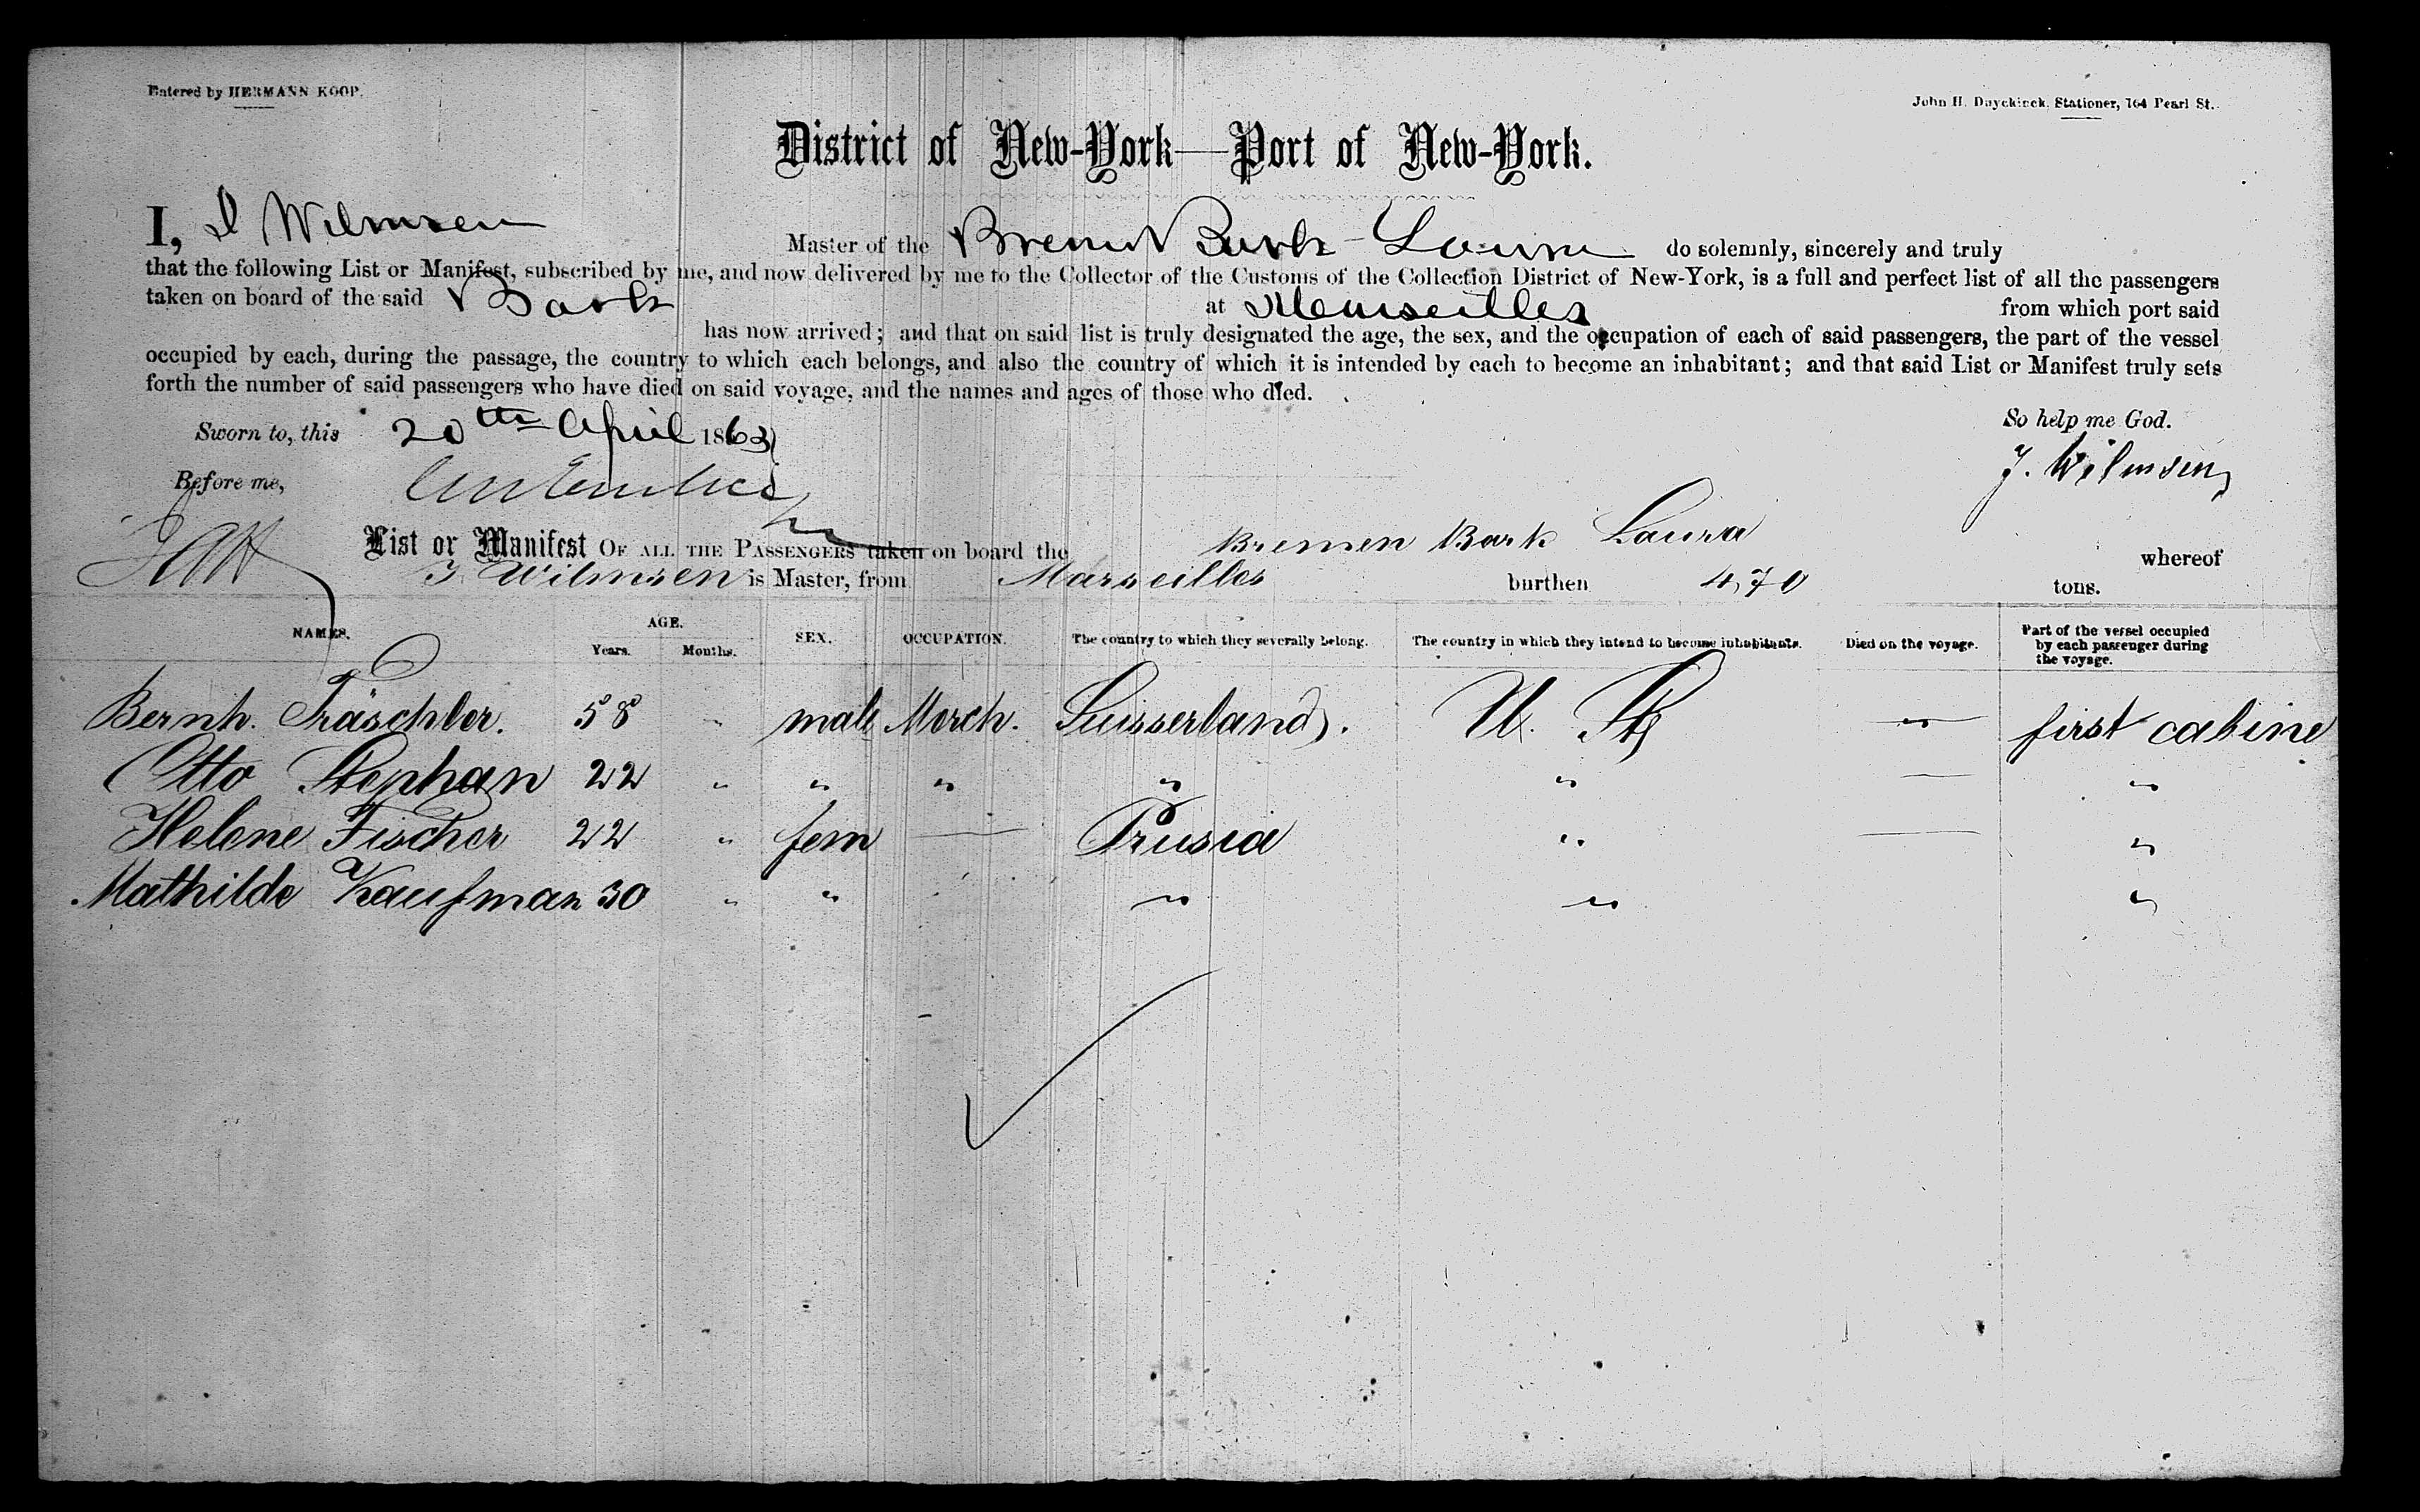 Entered by HERMANN KOOP.
John H. Duyckinck, Stationer, 164 Pearl St.
District of New-York—Port of New-York.
I, J Wilmsen Master of the Bremen Bark Laura do solemnly, sincerely and truly
that the following List or Manifest, subscribed by me, and now delivered by me to the Collector of the Customs of the Collection District of New-York, is a full and perfect list of all the passengers
taken on board of the said Bark at Marseilles from which port said
has now arrived; and that on said list is truly designated the age, the sex, and the occupation of each of said passengers, the part of the vessel
occupied by each, during the passage, the country to which each belongs, and also the country of which it is intended by each to become an inhabitant; and that said List or Manifest truly sets
forth the number of said passengers who have died on said voyage, and the names and ages of those who died.
Sworn to, this 20th April 1863
So help me God.
Before me,
J. Wilmsen
List or Manifest OF ALL THE PASSENGERS taken on board the Bremen Bark Laura whereof
J Wilmsen is Master, from Marseilles burthen 470 tons.
NAMES. AGE. Years. Months. SEX. OCCUPATION. The country to which they severally belong. The country in which they intend to become inhabitants. Died on the voyage. Part of the vessel occupied by each passenger during the voyage.
Bernh. Träschler. 58 " male Merch. Suisserland. U. Sts — first cabine
Otto Stephan 22 " " " " " — "
Helene Fischer 22 " fem — Prusia " — "
Mathilde Kaufman 30 " " " " "